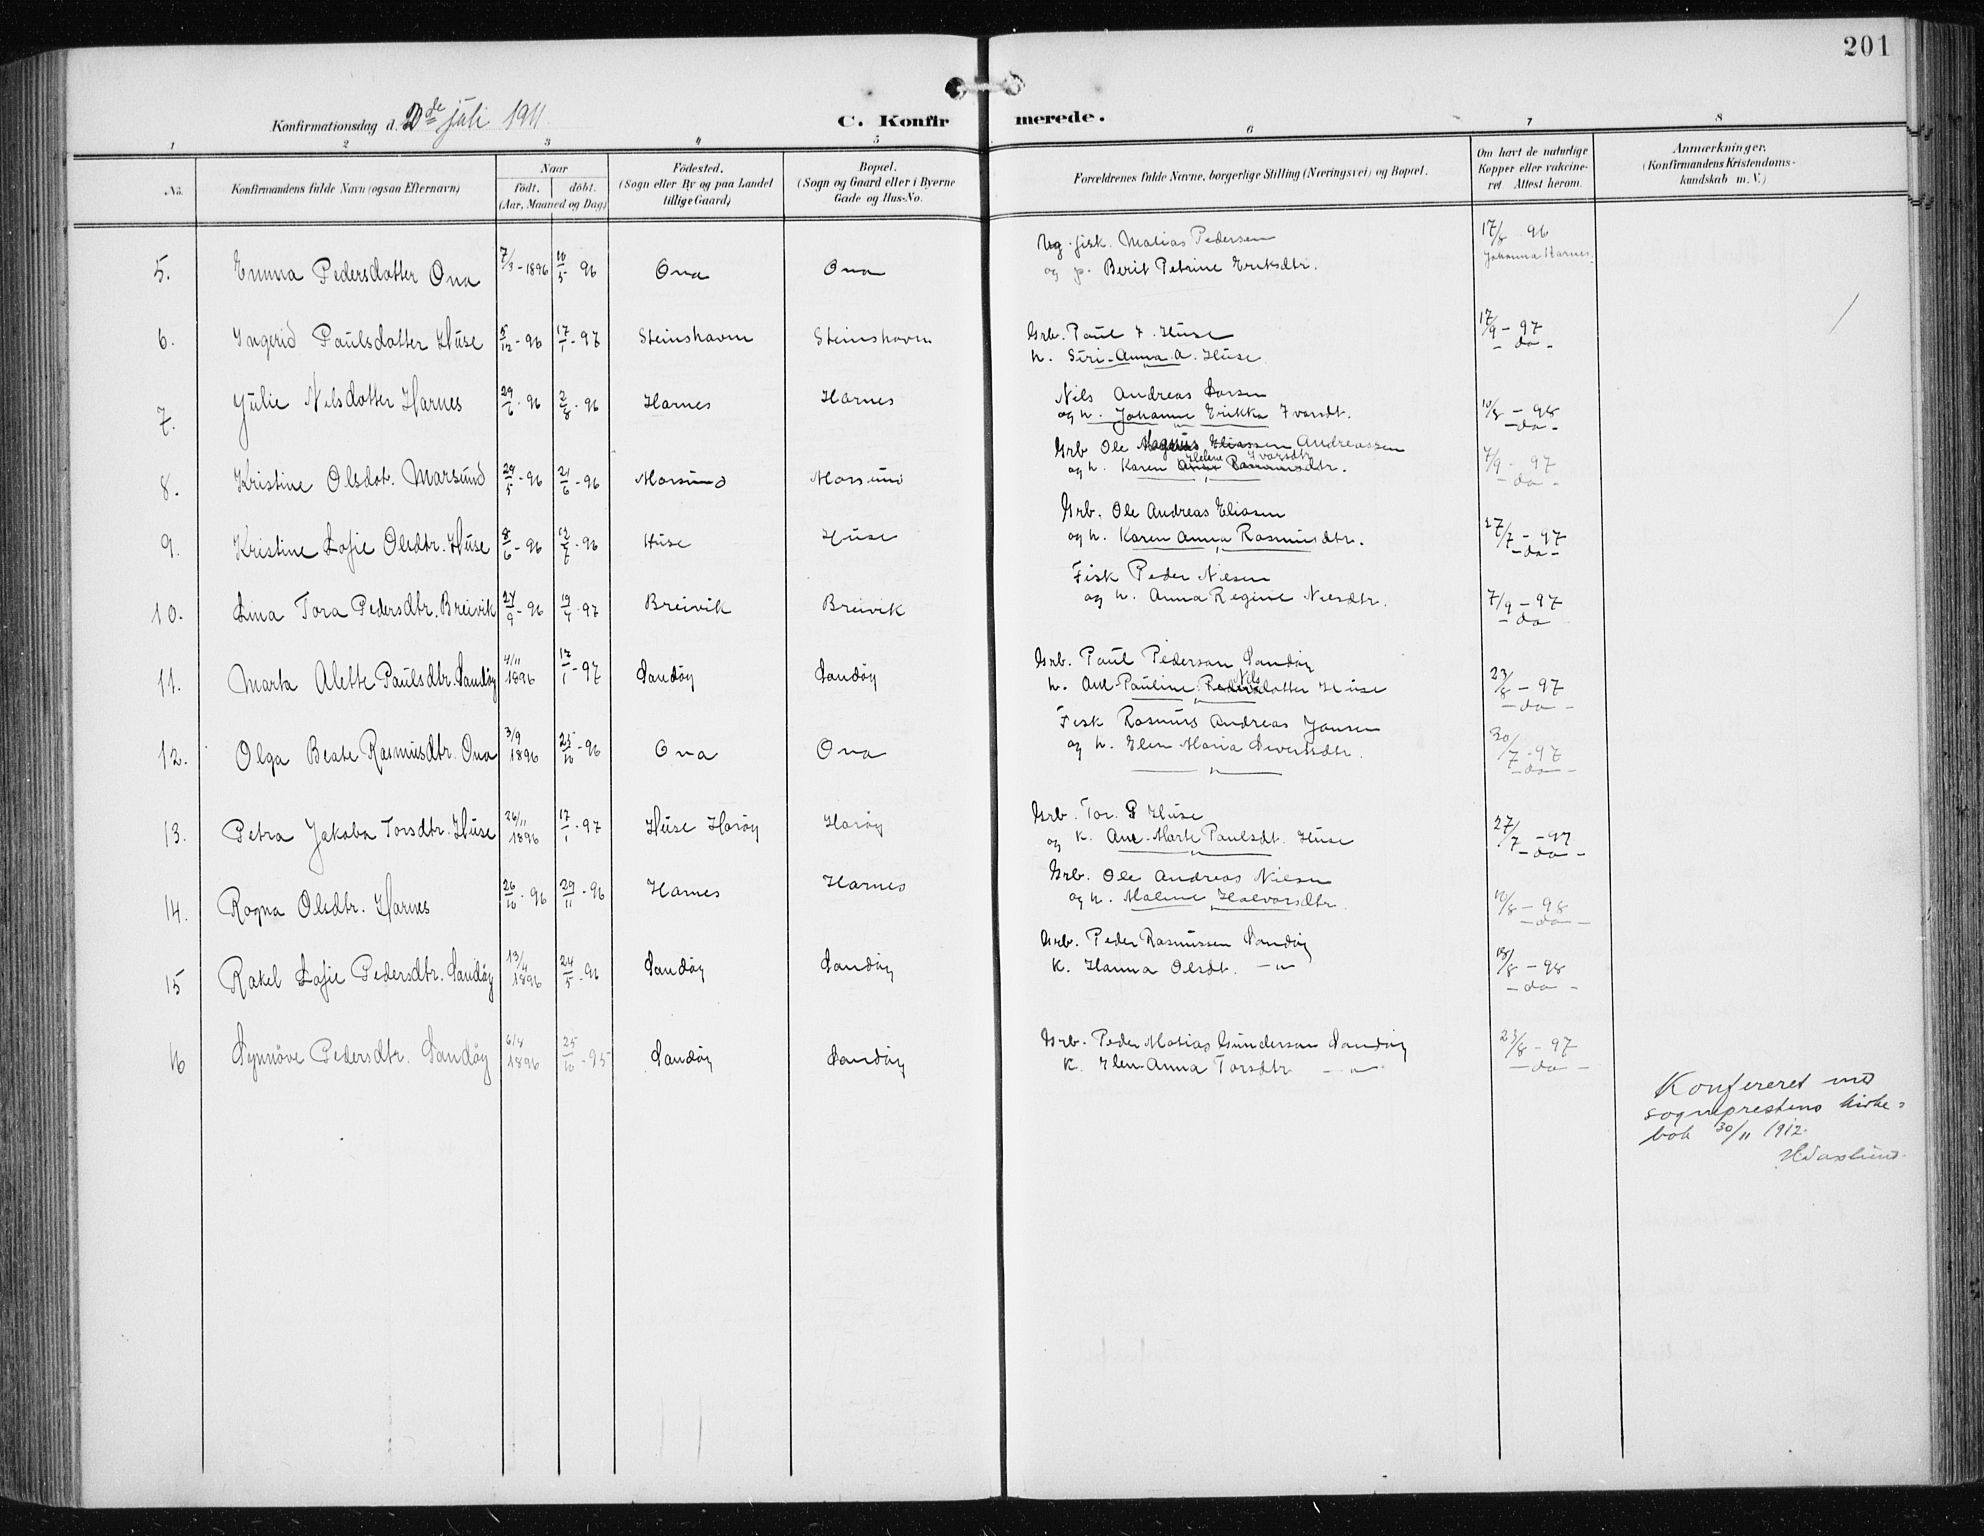 201
Konfirmationsdag d. 2de juli 1911
C. Konfirmerede.
1 2 3 4 5 6 7 8
No. Konfirmandens fulde Navn (ogsaa Efternavn) Naar født. døbt. (Aar, Maaned og Dag) Fødested. (Sogn eller By og paa Landet tillige Gaard) Bopæl. (Sogn og Gaard eller i Byerne Gade og Hus-No. Forældrenes fulde Navne, borgerlige Stilling (Næringsvei) og Bopæl. Om havt de naturlige Kopper eller vakcineret Attest herom. Anmærkninger. (Konfirmandens Kristendomskundskab m. V.)
5. Emma Pedersdatter Ona 7/3-1896 10/5 96 Ona Ona Ug. fisk. Matias Pedersen 17/8 96
og p. Berit Petrine Eriksdtr. Johanna Harnes.
6. Ingerid Paulsdatter Huse 5/12-96 17/1-97 Steinshavn Steinshavn Grb. Paul I. Huse 17/9-97
h. Siri-Anna A. Huse -do-
7. Julie Nilsdatter Harnes 29/6-96 2/8-96 Harnes Harnes Nils Andreas Larsen 10/8-98
og h. Johanne Erikka Ivarsdt. -do-
8. Kristine Olsdat. Marsund 24/5-96 21/6-96 Morsund Morsund Grb Ole Magnus Eliassen Andreassen 7/9-97
og h. Karen Helene Ivarsdtr. -do-
9. Kristine Sofie Olsdtr. Huse 8/6-96 12/7-96 Huse Huse Grb. Ole Andreas Eliasen 27/7-97
og h. Karen Anna Rasmusdtr. -do-
10. Lina Tora Pedersdtr. Breivik 24/9-96 19/4-97 Breivik Breivik Fisk Peder Nilsen 7/9-97
og h. Anna Regine Nilsdtr. -do-
11. Marta Alette Paulsdtr. Sandøy 4/11 1896 17/1-97 Sandøy Sandøy Grb. Paul Pederson Sandøy 23/8-97
h. Ane-Pauline Nilsdatter Huse -do-
12. Olga Beate Rasmusdtr. Ona 3/9 1896 25/10-96 Ona Ona Fisk Rasmus Andreas Jansen 30/7-97
og h. Elen Maria Sivertsdtr. -do-
13. Petra Jakoba Torsdtr. Huse 26/11 1896 17/1-97 Huse Harøy Harøy Grb. Tor. P Huse 27/7-97
og K. Ane-Marte Paulsdt. Huse -do-
14. Ragna Olsdtr. Harnes 26/10-96 29/11-96 Harnes Harnes Grb. Ole Andreas Nilsen 10/8-98
og h. Maline Halvorsdtr -do-
15 Rakel Sofie Pedersdtr. Sandøy 13/4 1896 24/5-96 Sandøy Sandøy Grb. Peder Rasmussen Sandøy 18/8-98
K. Hanna Olsdt. -"- -do-
16 Synnøve Pedersdtr. Sandøy 6/8 1896 25/10-95 Sandøy Sandøy Grb. Peder Matias Gunderson Sandøy 23/8-97
K. Elen-Anna Torsdtr -"- -do-
Konfereret med
sogneprestens kirke-
bok 30/11 1912.